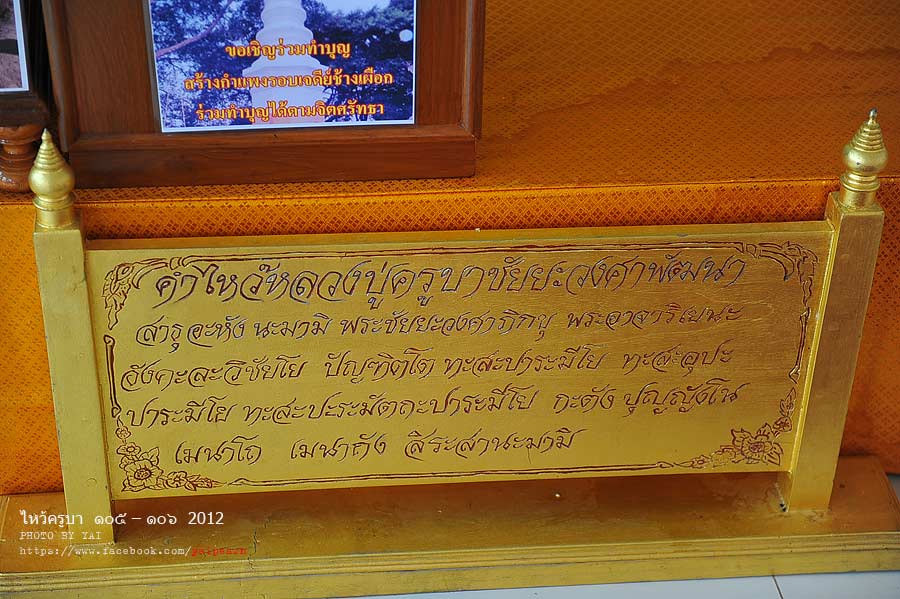 ขอเชิญร่วมทำบุญ
สร้างกำแพงรอบเจดีย์ช้างเผือก
ร่วมทำบุญได้ตามจิตศรัทธา
คำไหว้หลวงปู่ครูบาชัยยะวงศาพัฒนา
สาธุ อะหัง นะมามิ พระชัยยะวงศาภิกขุ พระอาจาริเยนะ
อังคะละวิชัยโย ปัญฑิตโต ทะสะปาระมีโย ทะสะอุปะ
ปาระมีโย ทะสะปะระมัตถะปาระมีโย กะตัง ปุญญัง
เมนาโถ เมนาถัง สิระสานะมามิ
ไหว้ครูบา ๑๐๕ - ๑๐๖ 2012
PHOTO BY YAI
https://www.facebook.com/